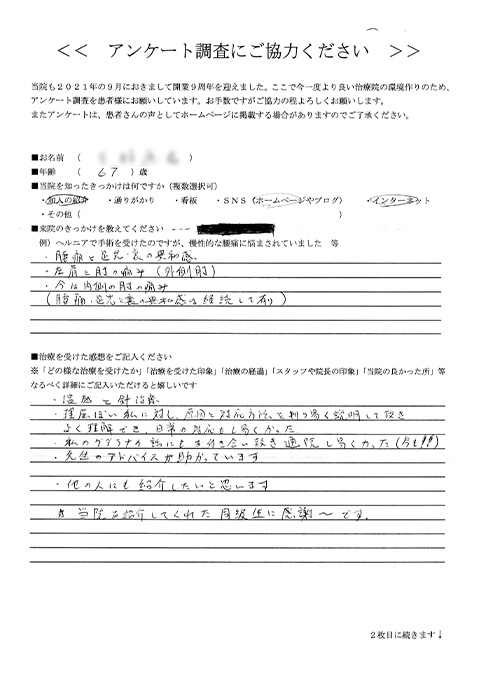 << アンケート調査にご協力ください >>
当院も2021年の9月におきまして開業9周年を迎えました。ここで今一度より良い治療院の環境作りのため、
アンケート調査を患者様にお願いしています。お手数ですがご協力の程よろしくお願いします。
またアンケートは、患者さんの声としてホームページに掲載する場合がありますのでご了承ください。
■お名前 ( )
■年齢 ( 67 )歳
■当院を知ったきっかけは何ですか（複数選択可）
・知人の紹介 ・通りがかり ・看板 ・SNS（ホームページやブログ） ・インターネット
・その他（ ）
■来院のきっかけを教えてください
例）ヘルニアで手術を受けたのですが、慢性的な腰痛に悩まされていました 等
・腰痛と足先・裏の異和感
・左肩と肘の痛み (外側肘)
・今は内側の肘の痛み
(腰痛・足先と裏の異和感は継続して有り)
■治療を受けた感想をご記入ください
※「どの様な治療を受けたか」「治療を受けた印象」「治療の経過」「スタッフや院長の印象」「当院の良かった所」等
なるべく詳細にご記入いただけると嬉しいです
・温熱と針治療
・理屈ぽい私に対し、原因と対応方法を判り易く説明して頂き
よく理解でき、日常の対応もし易くかった
・私の 話にもお付き合い頂き通院し易くかった (今も!!)
・先生のアドバイスが助かっています
・他の人にも紹介したいと思います
当院を紹介してくれた同級生に感謝〜です。
2枚目に続きます↓